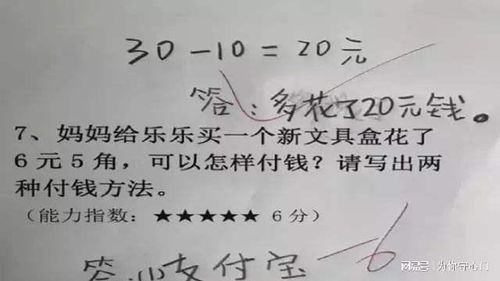 30-10=20元
答：多花了20元钱。
7、妈妈给乐乐买一个新文具盒花了
6元5角，可以怎样付钱？请写出两
种付钱方法。
（能力指数：★★★★★ 6分）
答：(1)支付宝 -6
搜狐号@为你守心门